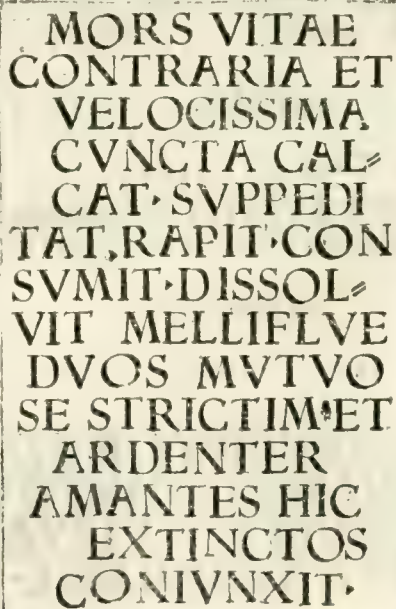 MORS VITAE
CONTRARIA ET
VELOCISSIMA
CVNCTA CAL⸗
CAT· SVPPEDI
TAT,RAPIT·CON
SVMIT·DISSOL⸗
VIT MELLIFLVE
DVOS MVTVO
SE STRICTIM·ET
ARDENTER
AMANTES HIC
EXTINCTOS
CONIVNXIT·